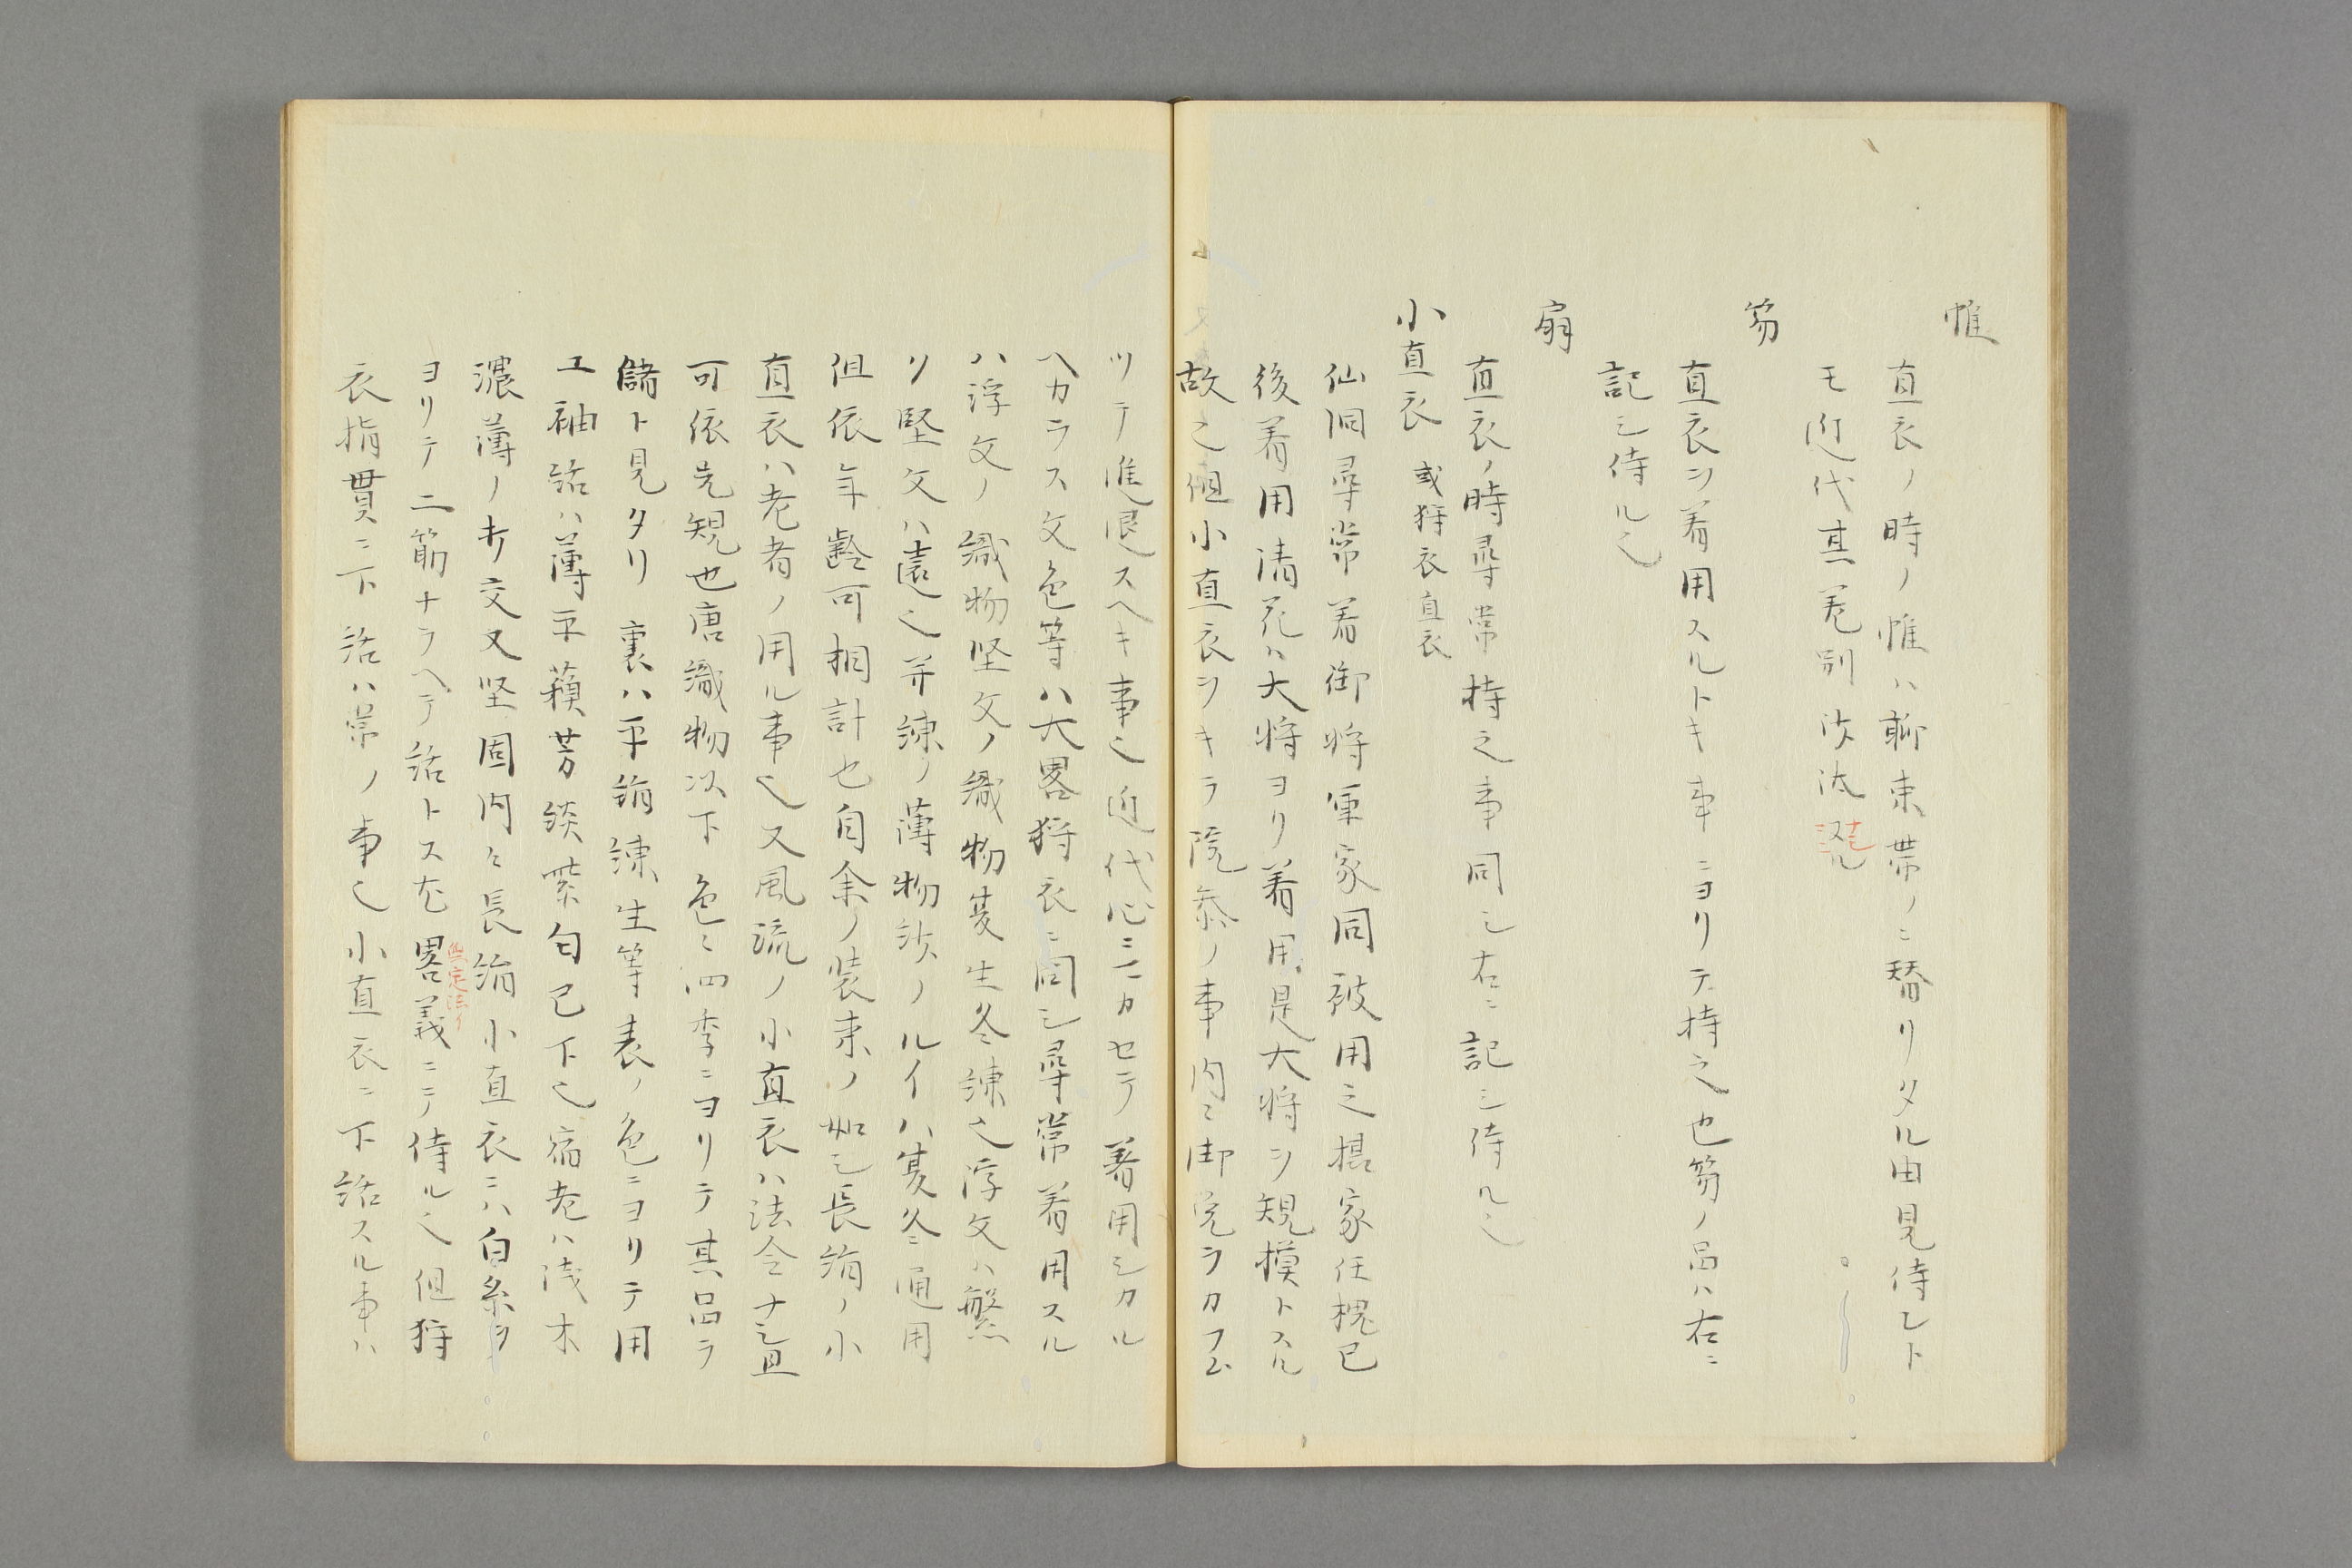 帷
直衣ノ時ノ帷ハ聊束帯ノニ替リタル由見侍レト
モ近代其差別沙汰
笏
直衣ヲ着用スルトキ事ニヨリテ持之也笏ノ品ハ右ニ
記シ侍ル也
扇
直衣ノ時尋常持之事同シ右ニ記シ侍ル也
小直衣 或狩衣直衣
仙洞尋常着御将軍家同被用之摂家任槐已
後着用清花ハ大将ヨリ着用是大将ヲ規模トスル
故也但小直衣ヲキラ院参ノ事内々御免ヲカフム
ツテ進退スヘキ事也近代心ニマカセテ着用シカル
ヘカラス文色等ハ大畧狩衣ニ同シ尋常着用スル
ハ浮文ノ織物堅文ノ織物夏生冬練也浮文ハ繁
リ堅文ハ遠也并練ノ薄物紗ノルイハ夏冬通用
但依年齢可相計也自余ノ装束ノ如シ長絹ノ小
直衣ハ老者ノ用ル事也又風流ノ小直衣ハ法令ナシ且
可依先規也唐織物以下色々四季ニヨリテ其品ヲ
儲ト見タリ 裏ハ平絹練生等表ノ色ニヨリテ用
エ袖括ハ薄平蘓芳緂紫匂已下也宿老ハ浅木
濃薄ノ左右交又堅固内々長絹小直衣ニハ白糸ヲ
ヨリテ二筋ナラヘテ括トス尤畧義ニテ侍ル也但狩
衣指貫ニ下括ハ常ノ事也小直衣ニ下括スル事ハ